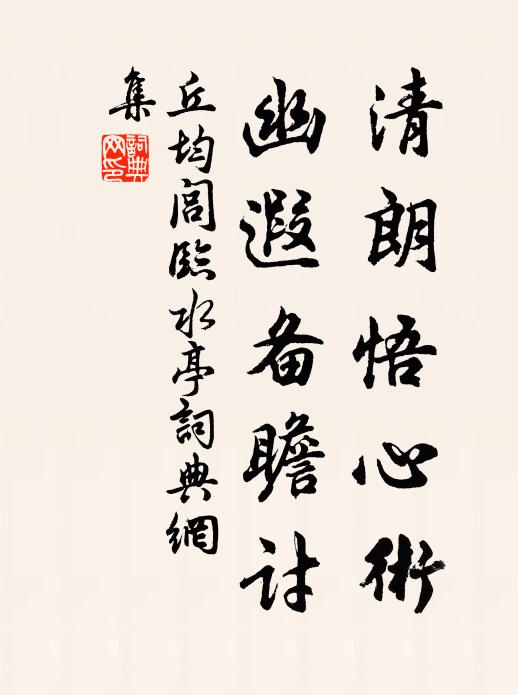 清朗悟心術
幽遐备瞻討
丘均閭臨水亭詞典網
集
詞典
网印